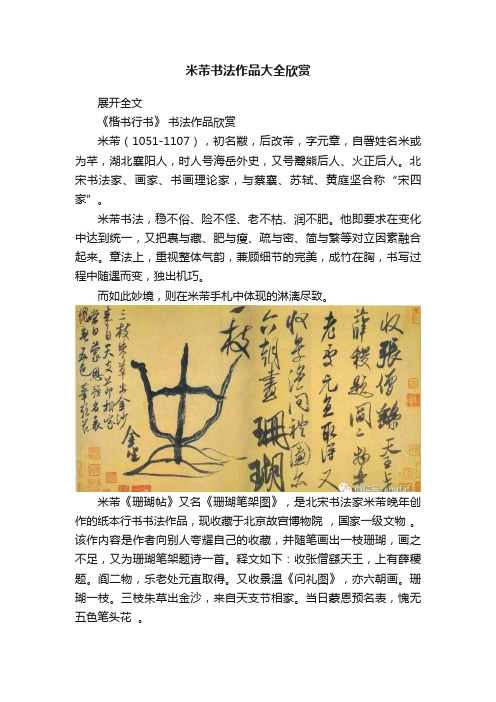 米芾书法作品大全欣赏
展开全文
《楷书行书》 书法作品欣赏
米芾（1051-1107），初名黻，后改芾，字元章，自署姓名米或
为芊，湖北襄阳人，时人号海岳外史，又号鬻熊后人、火正后人。北
宋书法家、画家、书画理论家，与蔡襄、苏轼、黄庭坚合称“宋四
家”。
米芾书法，稳不俗、险不怪、老不枯、润不肥。他即要求在变化
中达到统一，又把裹与藏、肥与瘦、疏与密、简与繁等对立因素融合
起来。章法上，重视整体气韵，兼顾细节的完美，成竹在胸，书写过
程中随遇而变，独出机巧。
而如此妙境，则在米芾手札中体现的淋漓尽致。
收張僧繇天王上
薛稷題閻二物樂
老處元直取得又
收景溫問禮圖亦
六朝畫 珊瑚
一枝
金坐
三枝朱草出金沙
来自天支節相家
當日蒙恩預名表
愧無五色筆頭花
米芾《珊瑚帖》又名《珊瑚笔架图》，是北宋书法家米芾晚年创
作的纸本行书书法作品，现收藏于北京故宫博物院 ，国家一级文物 。
该作内容是作者向别人夸耀自己的收藏，并随笔画出一枝珊瑚，画之
不足，又为珊瑚笔架题诗一首。释文如下：收张僧繇天王，上有薛稷
题。阎二物，乐老处元直取得。又收景温《问礼图》，亦六朝画。珊
瑚一枝。三枝朱草出金沙，来自天支节相家。当日蒙恩预名表，愧无
五色笔头花 。